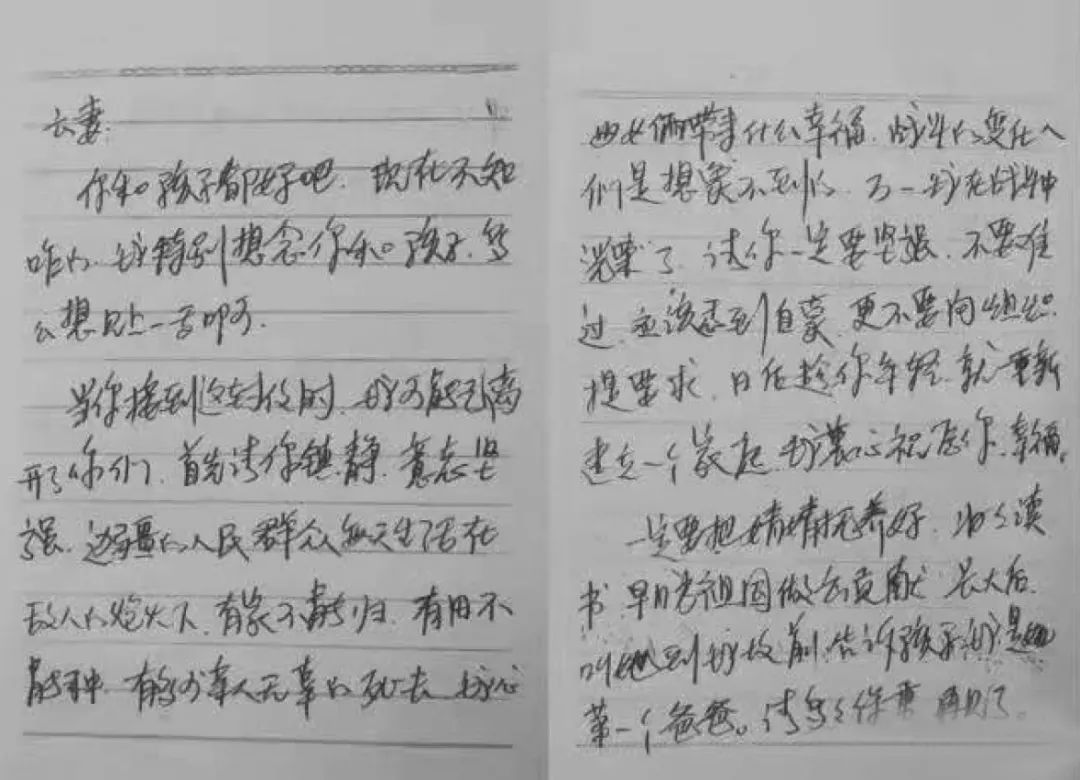 长妻:
你和孩子都好吧，现在不知
咋的，我特别想念你和孩子，多
么想见上一面啊。
当你接到这封信时，我可能已离
开了你们，首先请你镇静，意志坚
强，边疆的人民群众每天生活在
敌人的炮火下，有家不能归，有田不
能种，有多少亲人无辜的死去，我
母女俩带来什么幸福，战斗的变化人
们是想象不到的，万一我在战斗中
光荣了，请你一定要坚强，不要难
过，应该感到自豪，更不要向组织
提要求，日后趁你年轻，就重新
建立一个家庭，我衷心祝愿你幸福。
一定要把婧婧抚养好，为她读
书，早日为祖国做出贡献，长大后
叫她到我坟前，告诉孩子我是她
第一个爸爸。请多多保重，再见了。